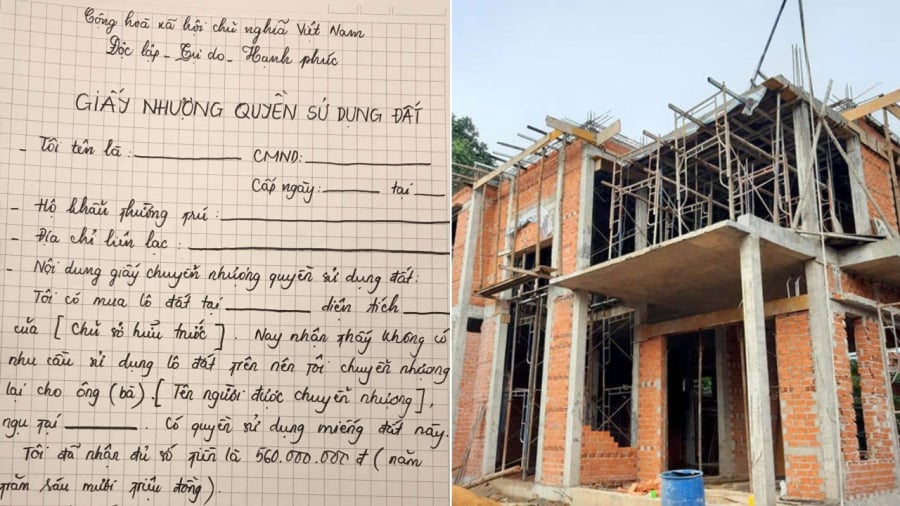 Cộng hoà xã hội chủ nghĩa Việt Nam
Độc lập - Tự do - Hạnh phúc
GIẤY NHƯỢNG QUYỀN SỬ DỤNG ĐẤT
- Tôi tên là: CMND:
Cấp ngày: tại
- Hộ khẩu thường trú:
- Địa chỉ liên lạc:
- Nội dung giấy chuyển nhượng quyền sử dụng đất:
Tôi có mua lô đất tại diện tích
của [Chủ sở hữu trước]. Nay nhận thấy không có
nhu cầu sử dụng lô đất trên nên tôi chuyển nhượng
lại cho ông (bà) [Tên người được chuyển nhượng],
ngụ tại . Có quyền sử dụng miếng đất này.
Tôi đã nhận đủ số tiền là 560.000.000 đ (năm
trăm sáu mươi triệu đồng).